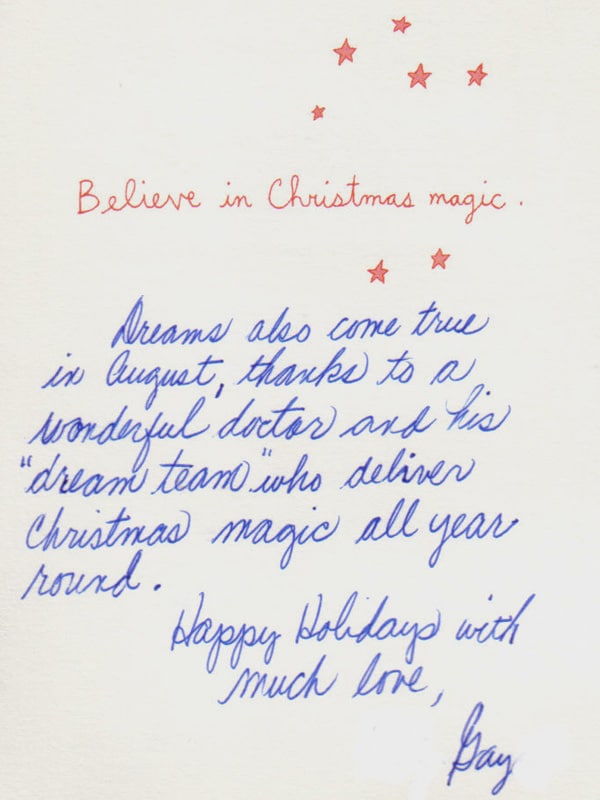 Believe in Christmas magic.
Dreams also come true
in August, thanks to a
wonderful doctor and his
"dream team" who deliver
Christmas magic all year
round.
Happy Holidays with
much love,
Gay